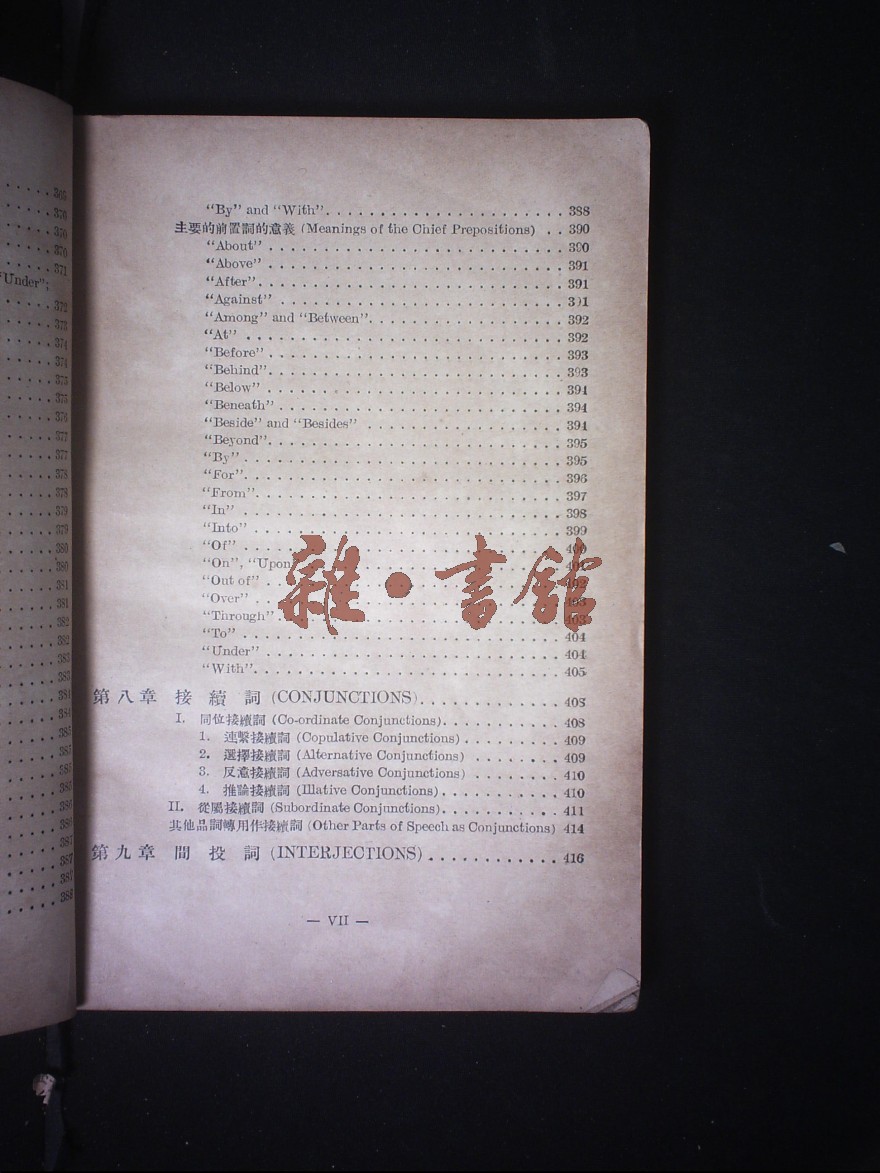 365
370
370
370
371
"Under";
372
373
374
374
375
375
376
377
377
378
378
379
379
380
380
381
381
382
382
383
383
384
384
385
385
385
386
386
387
387
387
388
"By" and "With". . . . . . . . . . . . . . . . . . . . . . . 388
主要的前置詞的意義 (Meanings of the Chief Prepositions) . . 390
"About" . . . . . . . . . . . . . . . . . . . . . . . . . . . 390
"Above" . . . . . . . . . . . . . . . . . . . . . . . . . . . 391
"After". . . . . . . . . . . . . . . . . . . . . . . . . . . . 391
"Against" . . . . . . . . . . . . . . . . . . . . . . . . . . 391
"Among" and "Between". . . . . . . . . . . . . . . . . . . 392
"At" . . . . . . . . . . . . . . . . . . . . . . . . . . . . . 392
"Before" . . . . . . . . . . . . . . . . . . . . . . . . . . . 393
"Behind". . . . . . . . . . . . . . . . . . . . . . . . . . . 393
"Below" . . . . . . . . . . . . . . . . . . . . . . . . . . . 394
"Beneath" . . . . . . . . . . . . . . . . . . . . . . . . . . 394
"Beside" and "Besides" . . . . . . . . . . . . . . . . . . . 394
"Beyond". . . . . . . . . . . . . . . . . . . . . . . . . . . 395
"By" . . . . . . . . . . . . . . . . . . . . . . . . . . . . . 395
"For". . . . . . . . . . . . . . . . . . . . . . . . . . . . . 396
"From". . . . . . . . . . . . . . . . . . . . . . . . . . . . 397
"In" . . . . . . . . . . . . . . . . . . . . . . . . . . . . . 398
"Into" . . . . . . . . . . . . . . . . . . . . . . . . . . . . 399
"Of" . . . . . . . . . . . . . . . . . . . . . . . . . . . . . 400
"On", "Upon" . . . . . . . . . . . . . . . . . . . . . . . . 401
"Out of" . . . . . . . . . . . . . . . . . . . . . . . . . . . 402
"Over" . . . . . . . . . . . . . . . . . . . . . . . . . . . . 403
"Through" . . . . . . . . . . . . . . . . . . . . . . . . . . 403
"To" . . . . . . . . . . . . . . . . . . . . . . . . . . . . . 404
"Under" . . . . . . . . . . . . . . . . . . . . . . . . . . . 404
"With". . . . . . . . . . . . . . . . . . . . . . . . . . . . 405
雜•書館
第八章 接 續 詞 (CONJUNCTIONS). . . . . . . . . . . . 408
I. 同位接續詞 (Co-ordinate Conjunctions). . . . . . . . . . . 408
1. 連繫接續詞 (Copulative Conjunctions) . . . . . . . . . 409
2. 選擇接續詞 (Alternative Conjunctions) . . . . . . . . . 409
3. 反意接續詞 (Adversative Conjunctions) . . . . . . . . . 410
4. 推論接續詞 (Illative Conjunctions). . . . . . . . . . . 410
II. 從屬接續詞 (Subordinate Conjunctions). . . . . . . . . . . 411
其他品詞轉用作接續詞 (Other Parts of Speech as Conjunctions) 414
第九章 間 投 詞 (INTERJECTIONS) . . . . . . . . . . . . 416
— VII —